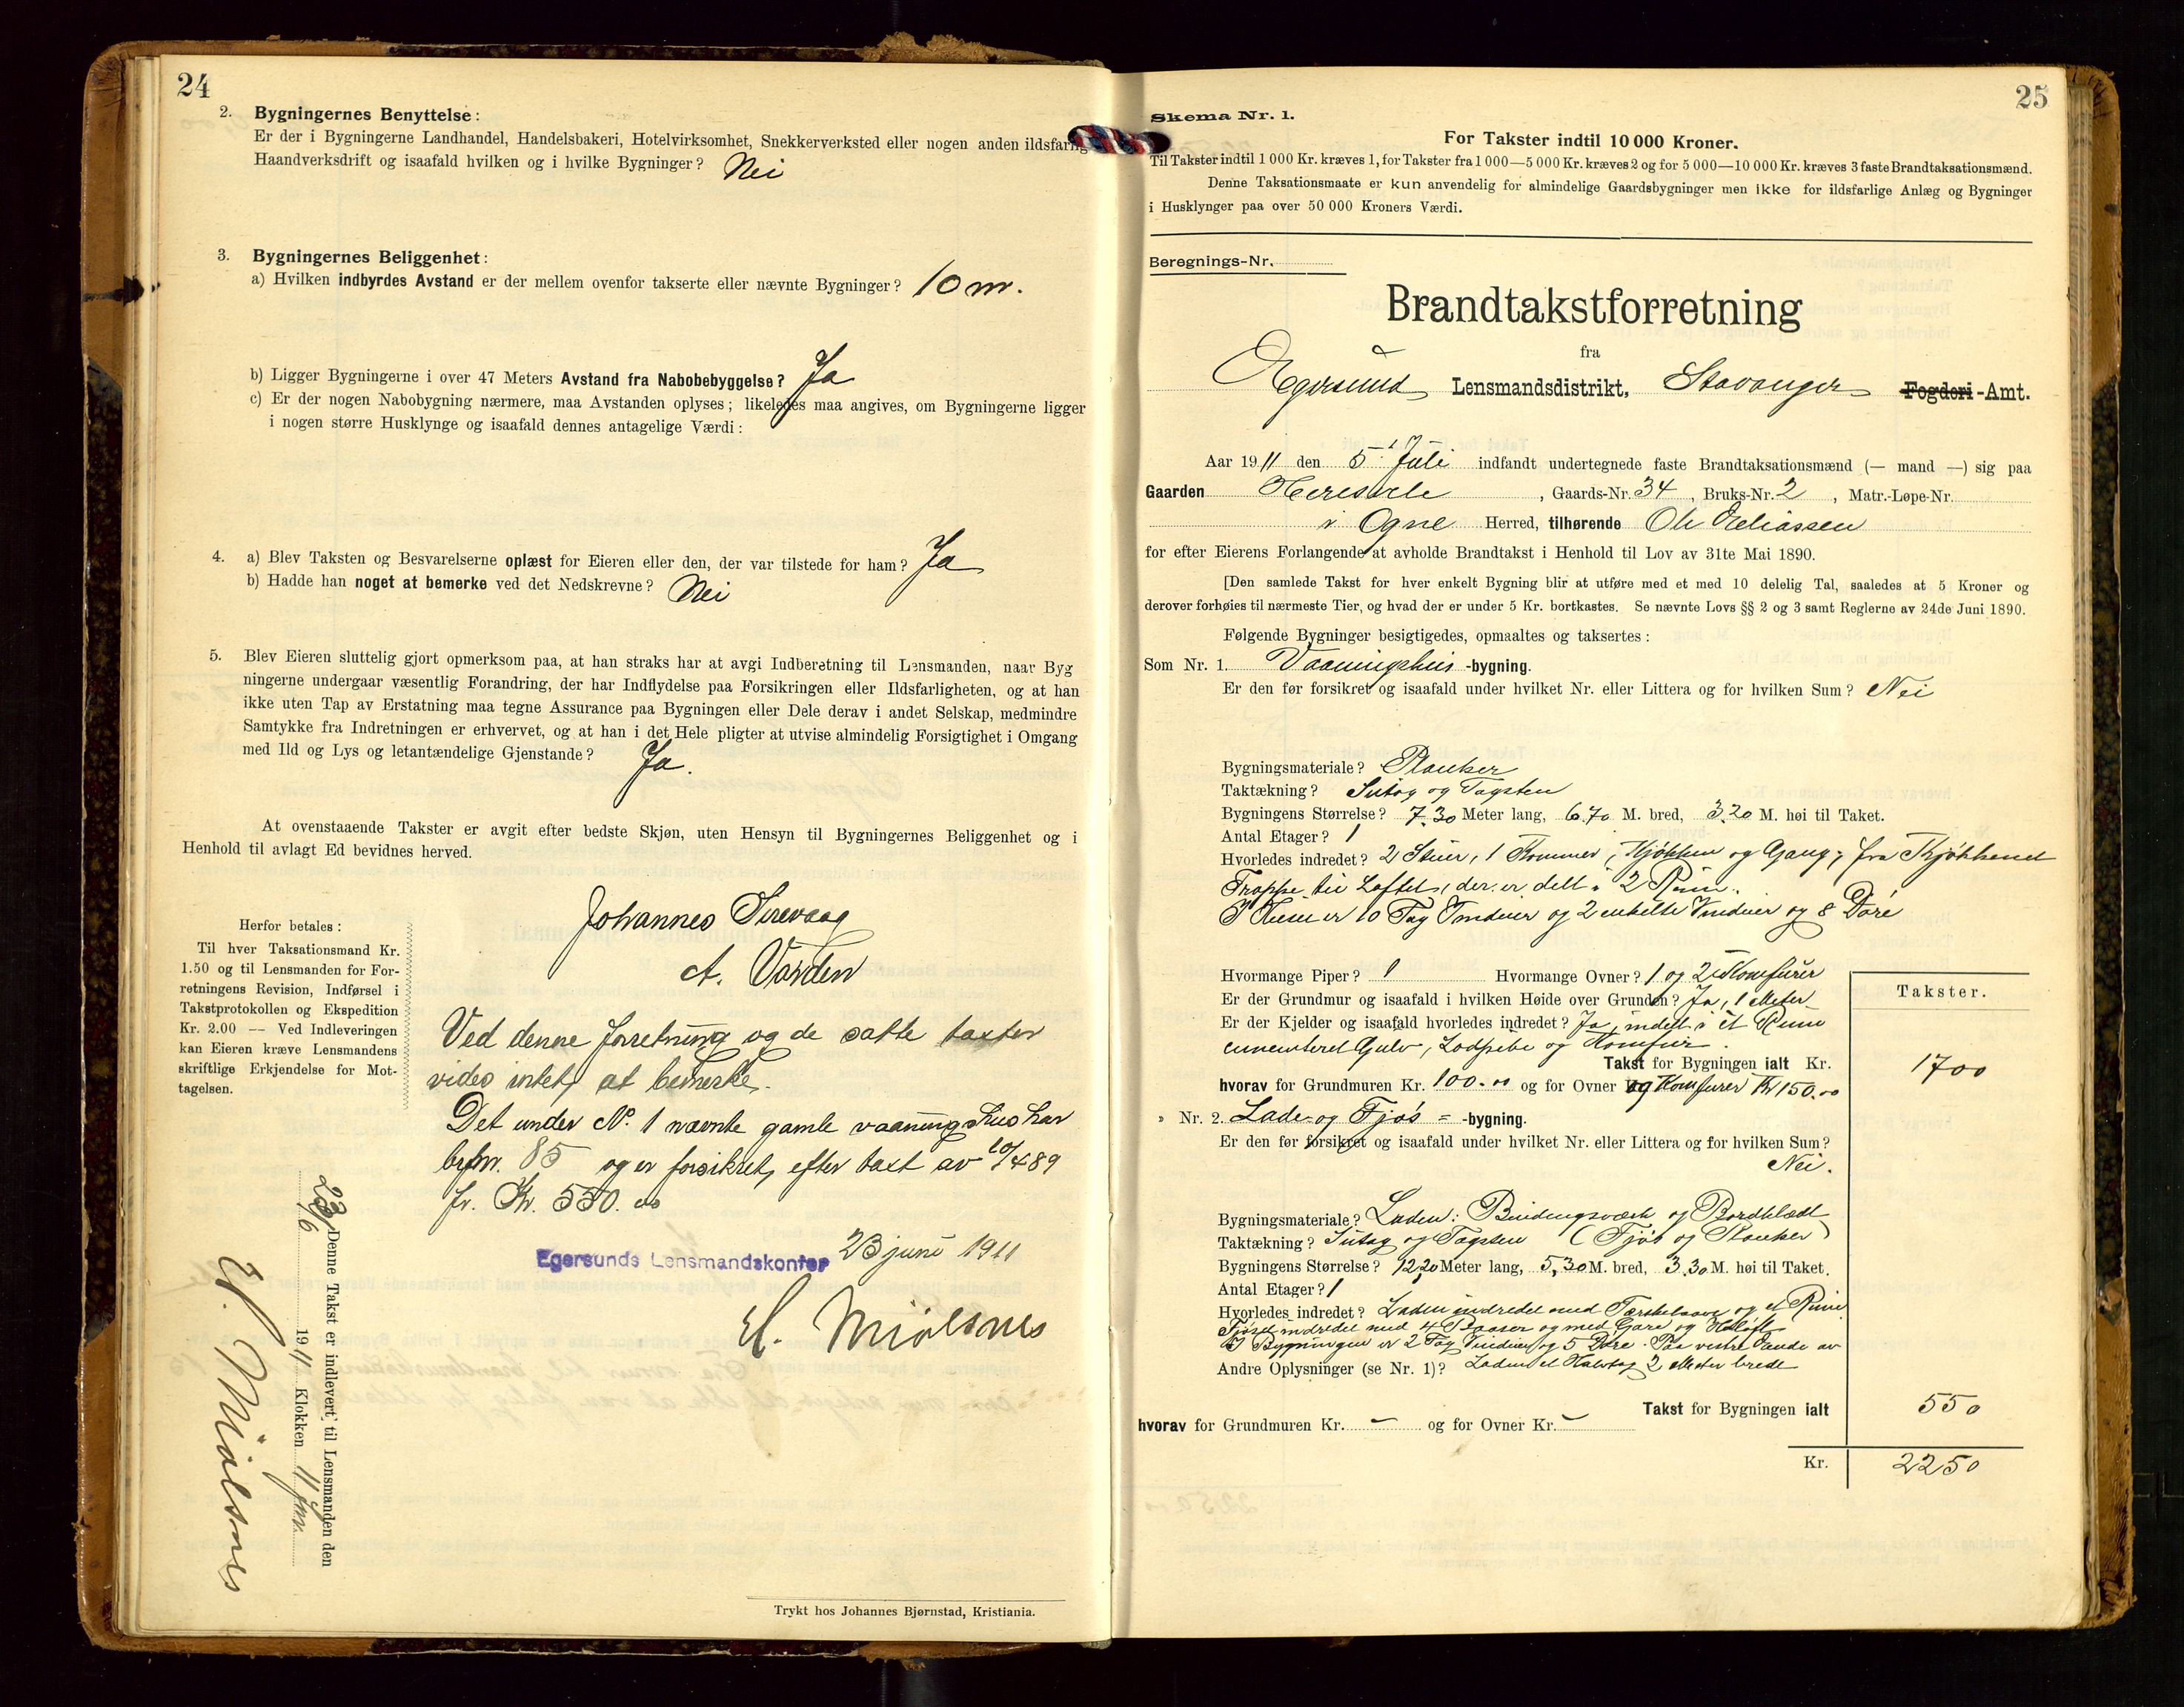 24
2. Bygningernes Benyttelse:
Er der i Bygningerne Landhandel, Handelsbakeri, Hotelvirksomhet, Snekkerverksted eller nogen anden ildsfarlig
Haandverksdrift og isaafald hvilken og i hvilke Bygninger? Nei
3. Bygningernes Beliggenhet:
a) Hvilken indbyrdes Avstand er der mellem ovenfor takserte eller nævnte Bygninger? 10 m.
b) Ligger Bygningerne i over 47 Meters Avstand fra Nabobebyggelse? Ja
c) Er der nogen Nabobygning nærmere, maa Avstanden oplyses; likeledes maa angives, om Bygningerne ligger
i nogen større Husklynge og isaafald dennes antagelige Værdi:
4. a) Blev Taksten og Besvarelserne oplæst for Eieren eller den, der var tilstede for ham? Ja
b) Hadde han noget at bemerke ved det Nedskrevne? Nei
5. Blev Eieren sluttelig gjort opmerksom paa, at han straks har at avgi Indberetning til Lensmanden, naar Byg
ningerne undergaar væsentlig Forandring, der har Indflydelse paa Forsikringen eller Ildsfarligheten, og at han
ikke uten Tap av Erstatning maa tegne Assurance paa Bygningen eller Dele derav i andet Selskap, medmindre
Samtykke fra Indretningen er erhvervet, og at han i det Hele pligter at utvise almindelig Forsigtighet i Omgang
med Ild og Lys og letantændelige Gjenstande? Ja.
At ovenstaaende Takster er avgit efter bedste Skjøn, uten Hensyn til Bygningernes Beliggenhet og i
Henhold til avlagt Ed bevidnes herved.
Johannes Sirevaag
A. Varden
Herfor betales:
Til hver Taksationsmand Kr.
1.50 og til Lensmanden for For-
retningens Revision, Indførsel i
Takstprotokollen og Ekspedition
Kr. 2.00 — Ved Indleveringen
kan Eieren kræve Lensmandens
skriftlige Erkjendelse for Mot-
tagelsen.
Ved denne forretning og de satte taxter
vides intet at bemerke.
Det under No. 1 nævnte gamle vaaningshus har
brfnr. 85 og er forsikret efter taxt av 10/4 89
fr. Kr. 550.00
Egersunds Lensmandskontor 23 juni 1911
H. Mjølsnes
Denne Takst er indlevert til Lensmanden den
23/6 1911 Klokken 11 fm.
H. Mjølsnes
Trykt hos Johannes Bjørnstad, Kristiania.
25
Skema Nr. 1.
For Takster indtil 10 000 Kroner.
Til Takster indtil 1 000 Kr. kræves 1, for Takster fra 1 000—5 000 Kr. kræves 2 og for 5 000—10 000 Kr. kræves 3 faste Brandtaksationsmænd.
Denne Taksationsmaate er kun anvendelig for almindelige Gaardsbygninger men ikke for ildsfarlige Anlæg og Bygninger
i Husklynger paa over 50 000 Kroners Værdi.
Beregnings-Nr.
Brandtakstforretning
fra
Egersund Lensmandsdistrikt, Stavanger Fogderi-Amt.
Aar 1911 den 5. Juli indfandt undertegnede faste Brandtaksationsmænd (— mand —) sig paa
Gaarden , Gaards-Nr. 34, Bruks-Nr. 2, Matr.-Løpe-Nr.
i Ogne Herred, tilhørende Ole Eliassen
for efter Eierens Forlangende at avholde Brandtakst i Henhold til Lov av 31te Mai 1890.
[Den samlede Takst for hver enkelt Bygning blir at utføre med et med 10 delelig Tal, saaledes at 5 Kroner og
derover forhøies til nærmeste Tier, og hvad der er under 5 Kr. bortkastes. Se nævnte Lovs §§ 2 og 3 samt Reglerne av 24de Juni 1890.
Følgende Bygninger besigtigedes, opmaaltes og taksertes:
Som Nr. 1. Vaaningshus -bygning.
Er den før forsikret og isaafald under hvilket Nr. eller Littera og for hvilken Sum? Nei
Bygningsmateriale? Planker
Taktækning? Sutag og Tagsten
Bygningens Størrelse? 7.30 Meter lang, 6.70 M. bred, 3.20 M. høi til Taket.
Antal Etager? 1
Hvorledes indredet? 2 Stuer, 1 Kammer, Kjøkken og Gang, fra Kjøkkenet
Trappe til Loftet, der er delt i 2 Rum.
I Huset er 10 Fag Vinduer og 2 enkelte Vinduer og 8 Døre
Hvormange Piper? 1 Hvormange Ovner? 1 og 2 Komfurer
Er der Grundmur og isaafald i hvilken Høide over Grunden? Ja, 1 Meter
Er der Kjelder og isaafald hvorledes indredet? Ja, inddelt i et Rum
cementeret Gulv, og Komfur.
Takst for Bygningen ialt Kr.
hvorav for Grundmuren Kr. 100.00 og for Ovner og Komfurer Kr 150.00
Takster.
1700
» Nr. 2. Lade og Fjøs -bygning.
Er den før forsikret og isaafald under hvilket Nr. eller Littera og for hvilken Sum?
Nei.
Bygningsmateriale? Laden: Bindingsværk og Bordklædt
Taktækning? Sutag og Tagsten (Fjøs og Planker)
Bygningens Størrelse? 12,20 Meter lang, 5,30 M. bred, 3.30 M. høi til Taket.
Antal Etager? 1
Hvorledes indredet? Laden indredet med Tærskelaave og et Rum
Fjøset indredet med 4 Baaser og med Gare og Høloft
I Bygningen er 2 Fag Vinduer og 5 Døre. Paa vestre Ende av
Andre Oplysninger (se Nr. 1)? Laden et Halvtag 2 Meter bredt
Takst for Bygningen ialt
550
hvorav for Grundmuren Kr. – og for Ovner Kr. –
Kr. 2250